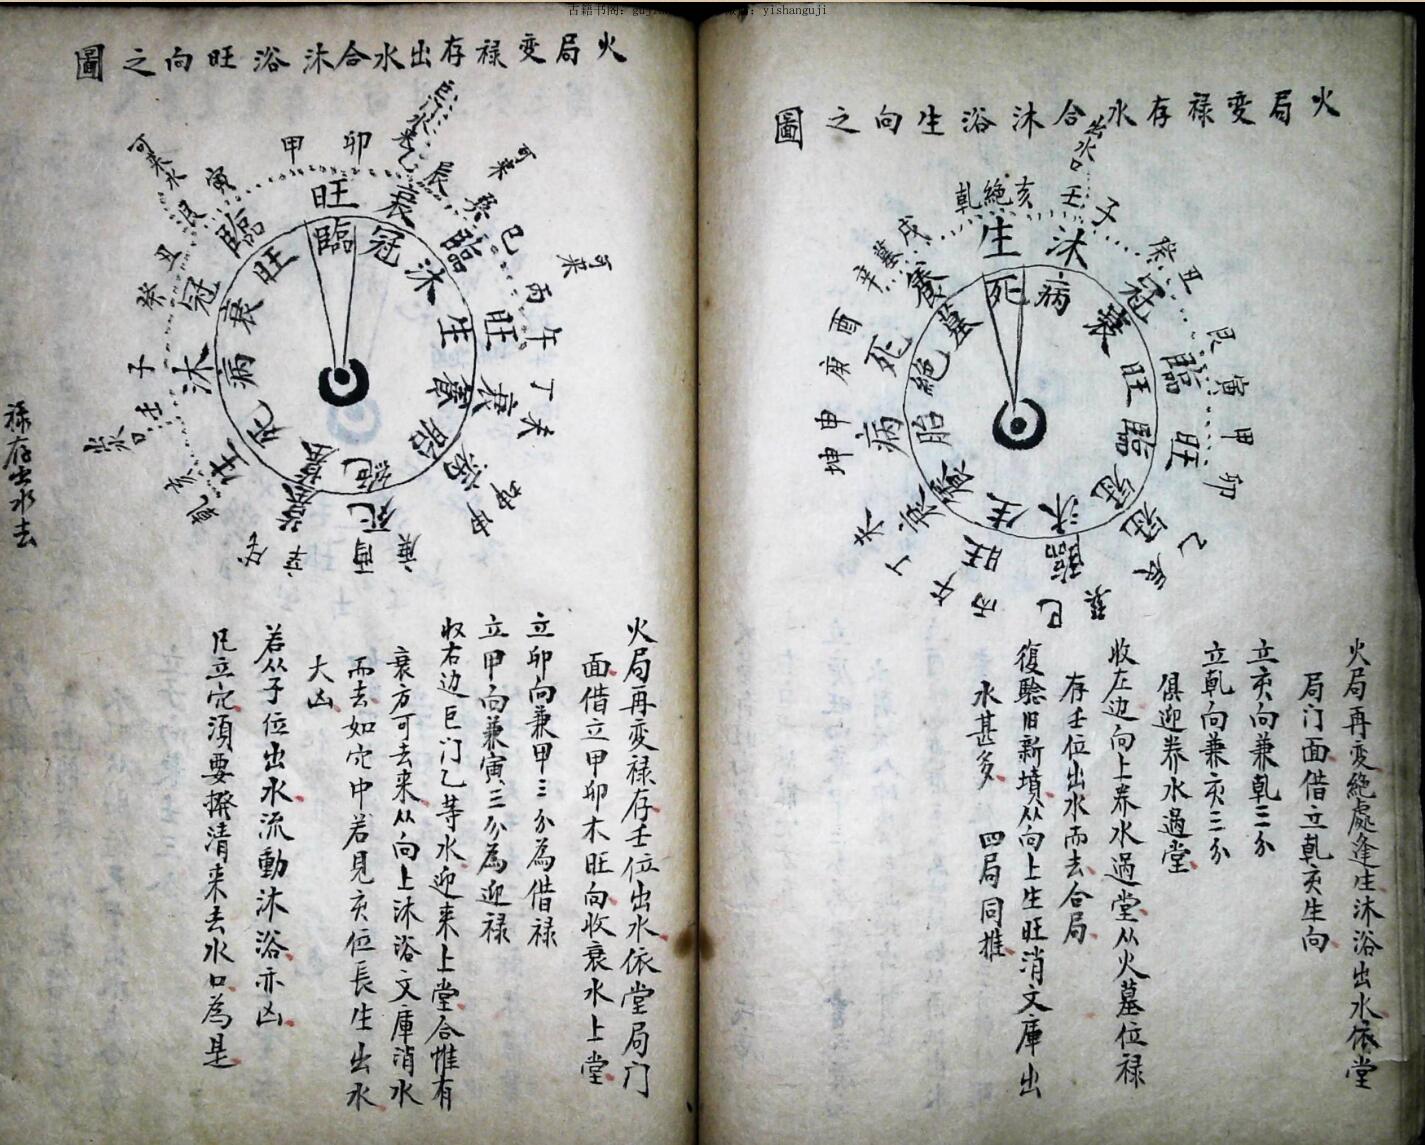 火局変禄存水合沐浴生向之圖
出水口
乾 絕 亥 壬 子 癸 丑 艮 寅 甲 卯 乙 辰 巽 巳 丙 午 丁 未 坤 申 庚 酉 辛 墓 戌
生 沐 冠 臨 旺 冠 臨 旺 衰 病 死 養
死 病 衰 旺 臨 冠 沐 生 養 胎 絕 墓
火局再变絕處逢生沐浴出水依堂
局门面借立乹亥生向
立亥向兼乹三分
立乹向兼亥三分
俱迎养水過堂
收左边向上养水過堂从火墓位禄
存壬位出水而去合局
復驗旧新墳从向上生旺消文庫出
水甚多 四局同推
火局变禄存出水合沐浴旺向之圖
巨门水来
可来
可来
可来水
出水口
甲 卯 乙 辰 巽 巳 丙 午 丁 未 坤 申 庚 酉 辛 戌 乾 亥 壬 子 癸 丑 艮 寅
旺 衰 臨 旺 衰 病 死 墓 生 沐 冠 臨
臨 冠 沐 生 養 胎 絕 墓 死 病 衰 旺
火局再变禄存壬位出水依堂局门
面借立甲卯木旺向收衰水上堂
立卯向兼甲三分為借禄
立甲向兼寅三分為迎禄
收右边巨门乙等水迎来上堂合惟有
衰方可去来从向上沐浴文庫消水
而去如穴中若見亥位長生出水
大凶
若从子位出水流動沐浴亦凶
凡立穴須要撥清来去水口為是
禄存出水去